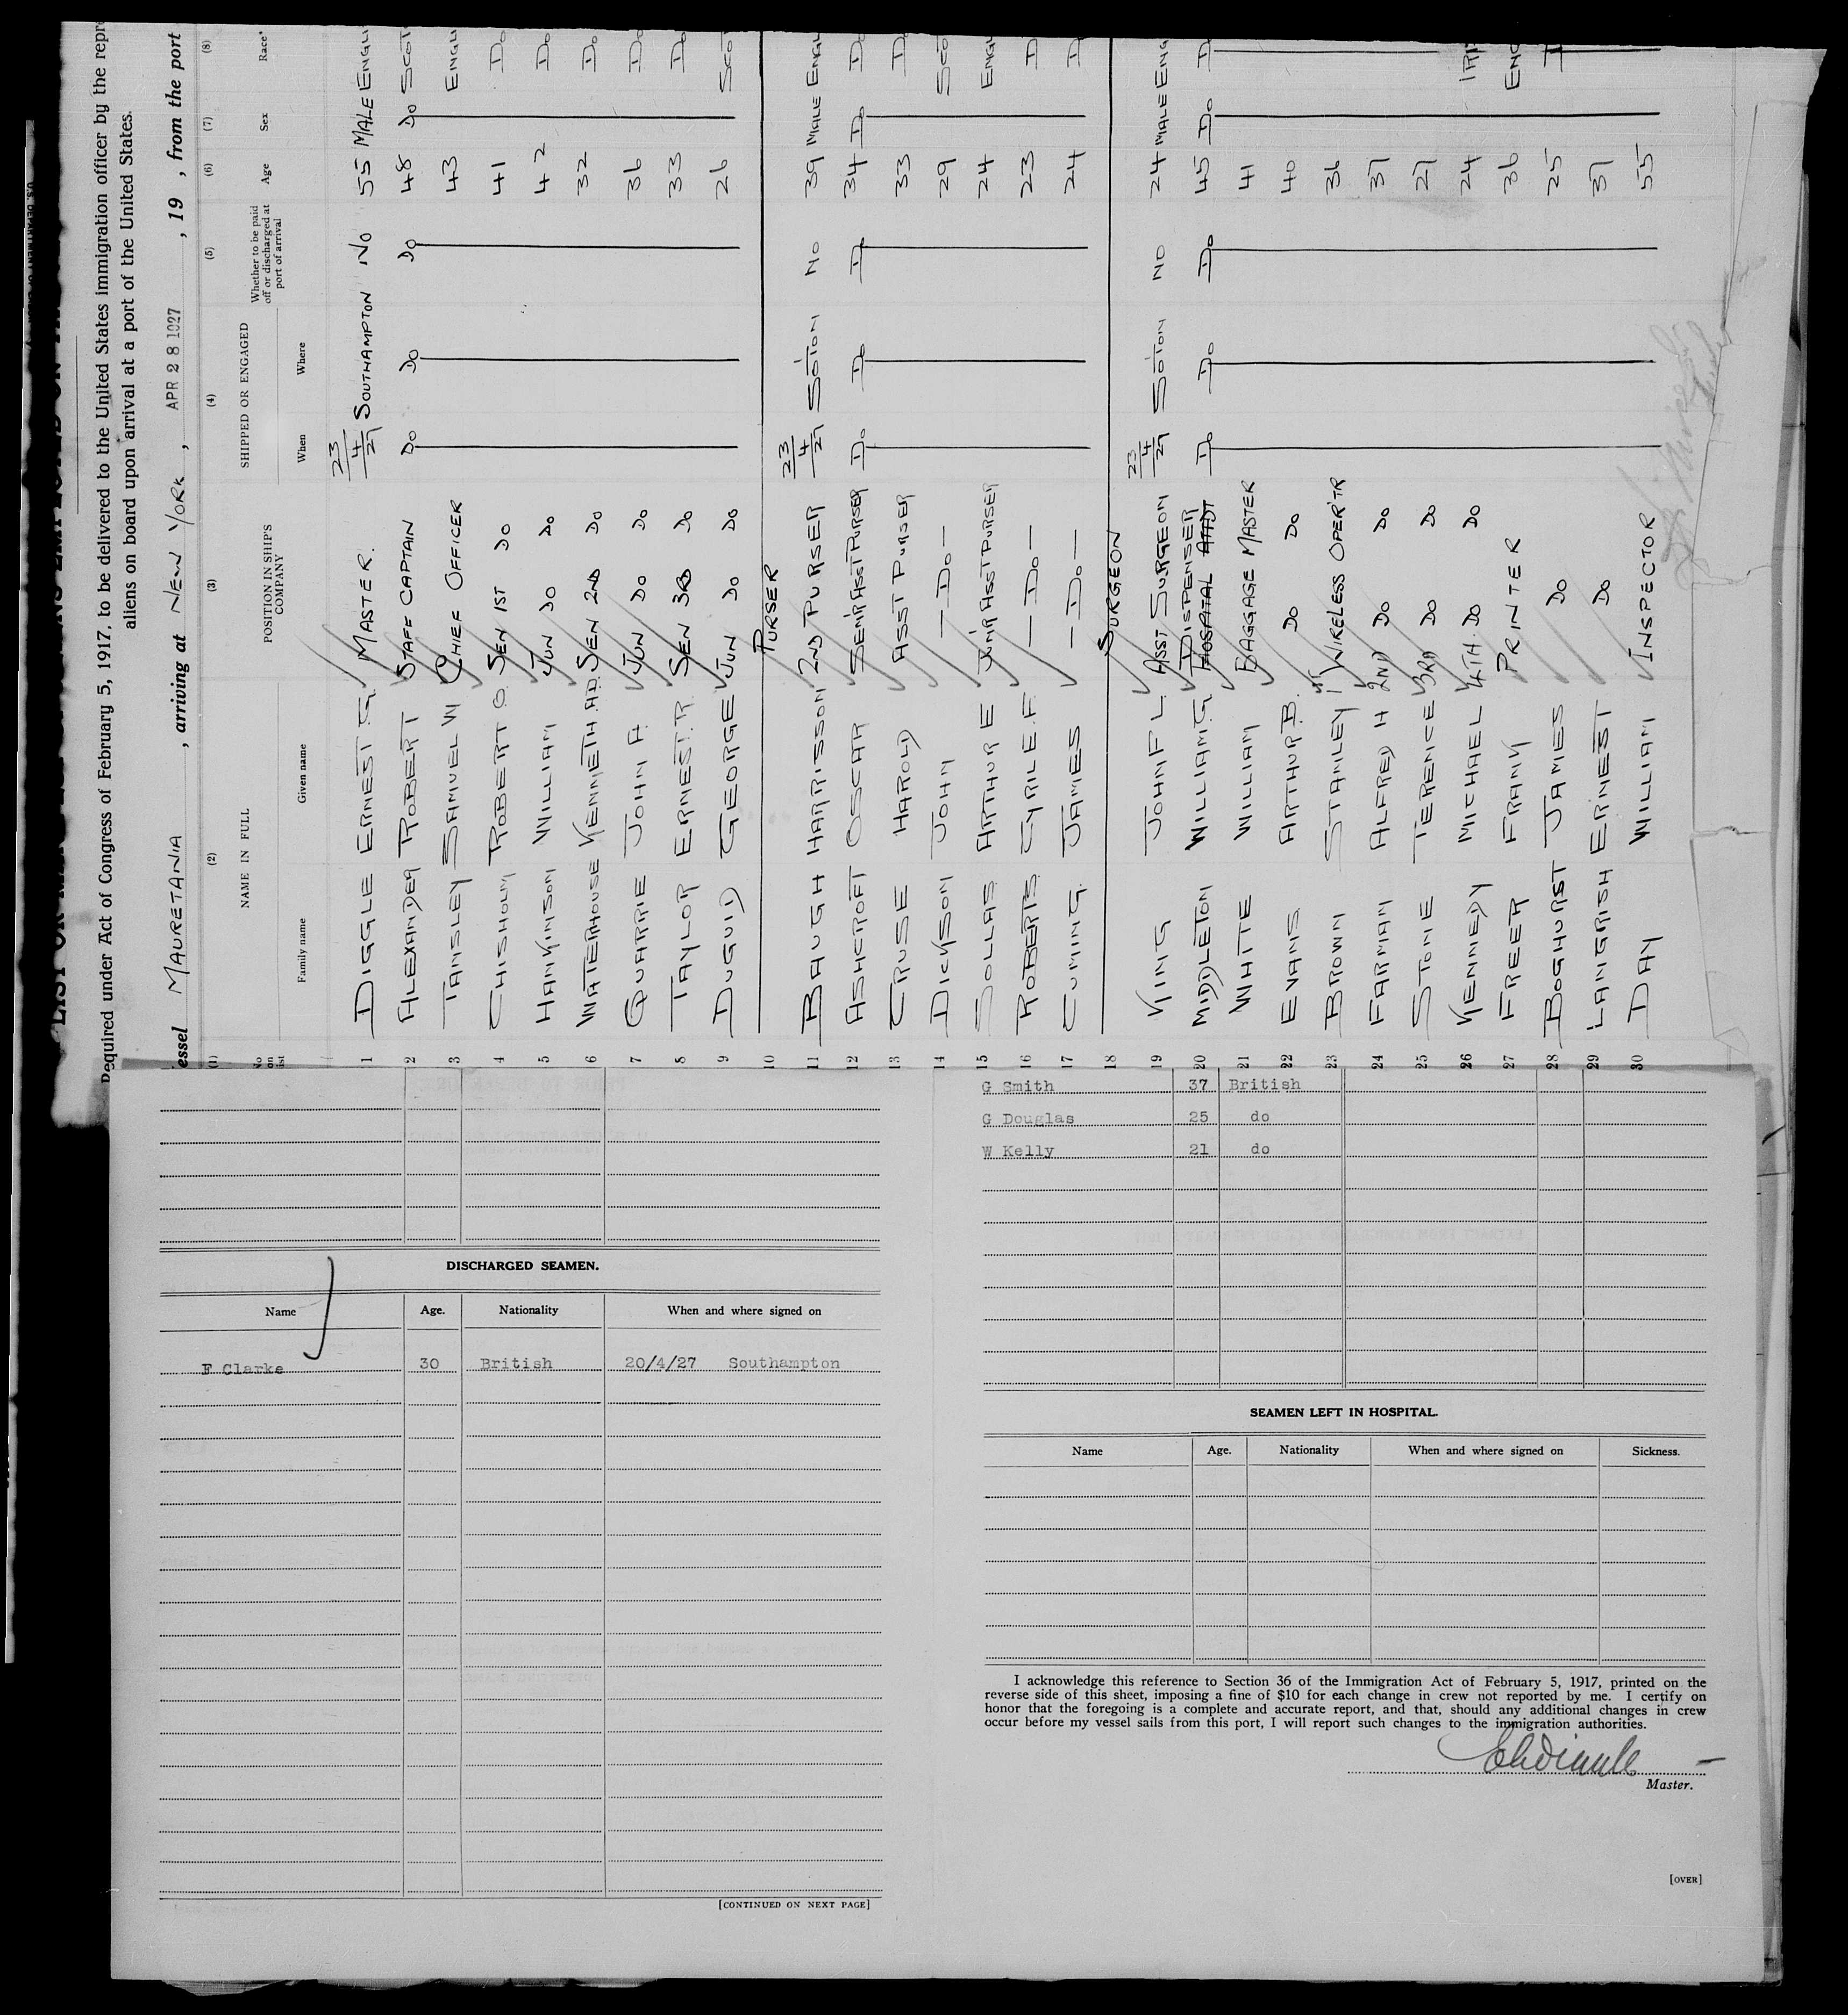 LIST OR
Required under Act of Congress of February 5, 1917, to be delivered to the United States immigration officer by the repr
aliens on board upon arrival at a port of the United States.
essel MAURETANIA , arriving at NEW YORK , APR 28 1927 , 19 , from the port
(1) (2) (3) (4) (5) (6) (7) (8)
No on list NAME IN FULL POSITION IN SHIP'S COMPANY SHIPPED OR ENGAGED Whether to be paid off or discharged at port of arrival Age Sex Race*
Family name Given name When Where
1 DIGGLE ERNEST G. MASTER. 23/4/27 SOUTHAMPTON NO 55 MALE ENGLI
2 ALEXANDER ROBERT STAFF CAPTAIN DO DO DO 48 DO SCOT
3 TANSLEY SAMUEL W CHIEF OFFICER 43 ENGLI
4 CHISHOLM ROBERT O. SEN 1ST DO 41 DO
5 HANKINSON WILLIAM JUN DO DO 42 DO
6 WATERHOUSE KENNETH AD. SEN 2ND DO 32 DO
7 QUARRIE JOHN A. JUN DO DO 36 DO
8 TAYLOR ERNEST. R. SEN 3RD DO 33 DO
9 DUGUID GEORGE JUN DO DO 26 SCOT
10 PURSER
11 BAUGH HARRISSON 2ND PURSER 23/4/27 SO'TON NO 39 MALE ENGL
12 ASHCROFT OSCAR SEN'R ASST PURSER DO DO DO 34 DO DO
13 CRUSE HAROLD ASST PURSER 33 DO
14 DICKSON JOHN — DO — 29 SCOT
15 SOLLAS ARTHUR E JUN'R ASST PURSER 24 ENGL
16 ROBERTS. CYRIL E. F. — DO — 23 D
17 CUMING. JAMES — DO — 24 D
18 SURGEON
19 KING JOHN F L. ASST SURGEON 23/4/27 SO'TON NO 24 MALE ENG
20 MIDDLETON WILLIAM. G. DISPENSER HOSPITAL ATTDT DO DO DO 45 DO D
21 WHITE WILLIAM BAGGAGE MASTER 41
22 EVANS. ARTHUR. B. DO DO 40
23 BROWN STANLEY 1ST WIRELESS OPER'TR 36
24 FARMAN ALFRED H 2ND DO DO 37
25 STONE TERENCE 3RD DO DO 27
26 KENNEDY MICHAEL 4TH. DO DO 24 IRI
27 FREER FRANK PRINTER 36 ENG
28 BOGHURST JAMES DO 25 D
29 LANGRISH ERNEST DO 37
30 DAY WILLIAM INSPECTOR 55
DISCHARGED SEAMEN.
Name Age. Nationality When and where signed on
F Clarke 30 British 20/4/27 Southampton
[CONTINUED ON NEXT PAGE]
G Smith 37 British
G Douglas 25 do
W Kelly 21 do
SEAMEN LEFT IN HOSPITAL.
Name Age. Nationality When and where signed on Sickness.
I acknowledge this reference to Section 36 of the Immigration Act of February 5, 1917, printed on the
reverse side of this sheet, imposing a fine of $10 for each change in crew not reported by me. I certify on
honor that the foregoing is a complete and accurate report, and that, should any additional changes in crew
occur before my vessel sails from this port, I will report such changes to the immigration authorities.
Master.
[OVER]